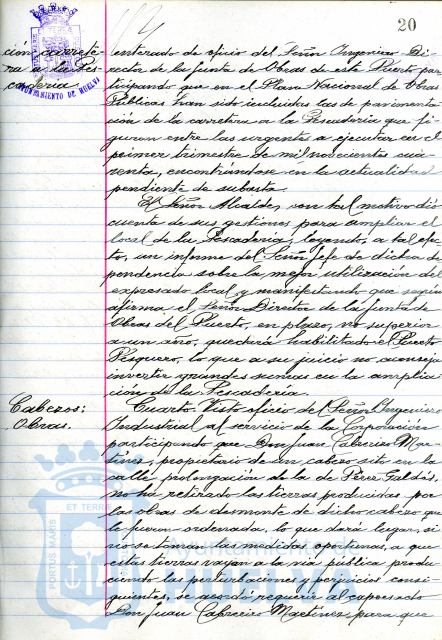 20
ción carrete-
ra a la Pes-
cadería
AYUNTAMIENTO DE HUELVA
enterado de oficio del Señor Ingeniero Di-
rector de la Junta de Obras de este Puerto par-
ticipando que en el Plan Nacional de Obras
Públicas han sido incluidas las de pavimenta-
ción de la carretera a la Pescadería que fi-
guran entre las urgentes a ejecutar en el
primer trimestre de mil novecientos cua-
renta, encontrándose en la actualidad
pendiente de subasta.
El Señor Alcalde, con tal motivo dió
cuenta de sus gestiones para ampliar el
local de la Pescadería, leyendo, a tal efec-
to, un informe del Señor Jefe de dicha de-
pendencia sobre la mejor utilización del
expresado local y manifestando que según
afirma el Señor Director de la Junta de
Obras del Puerto, en plazo, no superior
a un año, quedará habilitado el Puerto
Pesquero, lo que a su juicio no aconseja
invertir grandes sumas en la amplia-
ción de la Pescadería.
Cabezos:
Obras.
Cuarto. Visto oficio del Señor Ingeniero
Industrial al servicio de la Corporación
participando que Don Juan Cabreriro Mar-
tínez, propietario de un cabezo sito en la
calle prolongación de la de Pérez Galdós,
no ha retirado las tierras producidas por
las obras de desmonte de dicho cabezo que
le fueron ordenada, lo que dará lugar, si
no se toman las medidas oportunas, a que
estas tierras vayan a la vía pública produ-
ciendo las perturbaciones y perjuicios consi-
guientes, se acordó requerir al expresado
Don Juan Cabreriro Martínez, para que
PORTUS MARIS ET TERRE
Ayuntamiento de
HUELVA